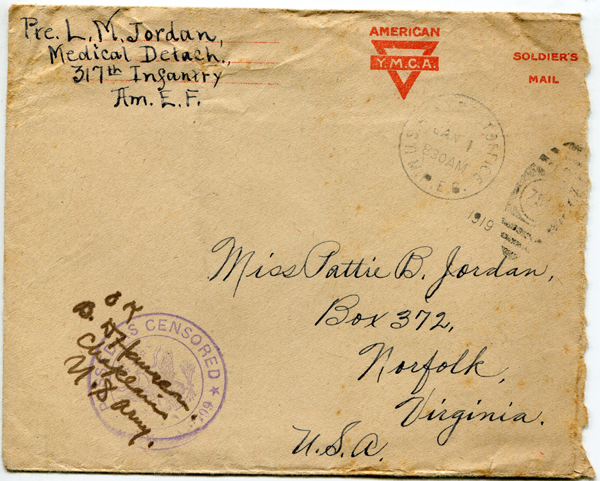 Pre. L. M. Jordan,
Medical Detach.,
317th Infantry
Am. E. F.
AMERICAN
Y.M.C.A.
SOLDIER'S
MAIL
JAN 1
830AM
1919
Miss Pattie B. Jordan,
Box 372,
Norfolk,
Virginia.
U.S.A.
CENSORED
O K
Chaplain
U.S. Army.